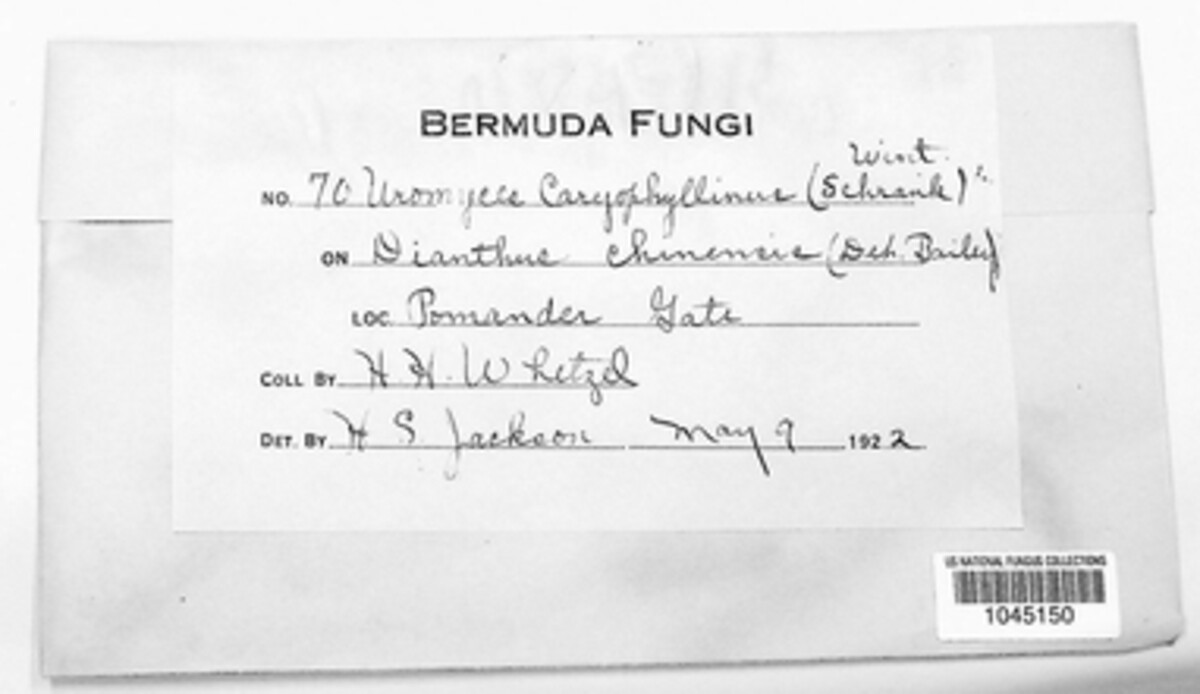 BERMUDA FUNGI
Wint.
NO. 70 Uromyces Caryophyllinus (Schrank)
ON Dianthus chinensis (Det. Bailey)
LOC. Pomander Gate
COLL BY H. H. Whetzel
DET. BY H S. Jackson May 9 1922
US NATIONAL FUNGUS COLLECTIONS
1045150